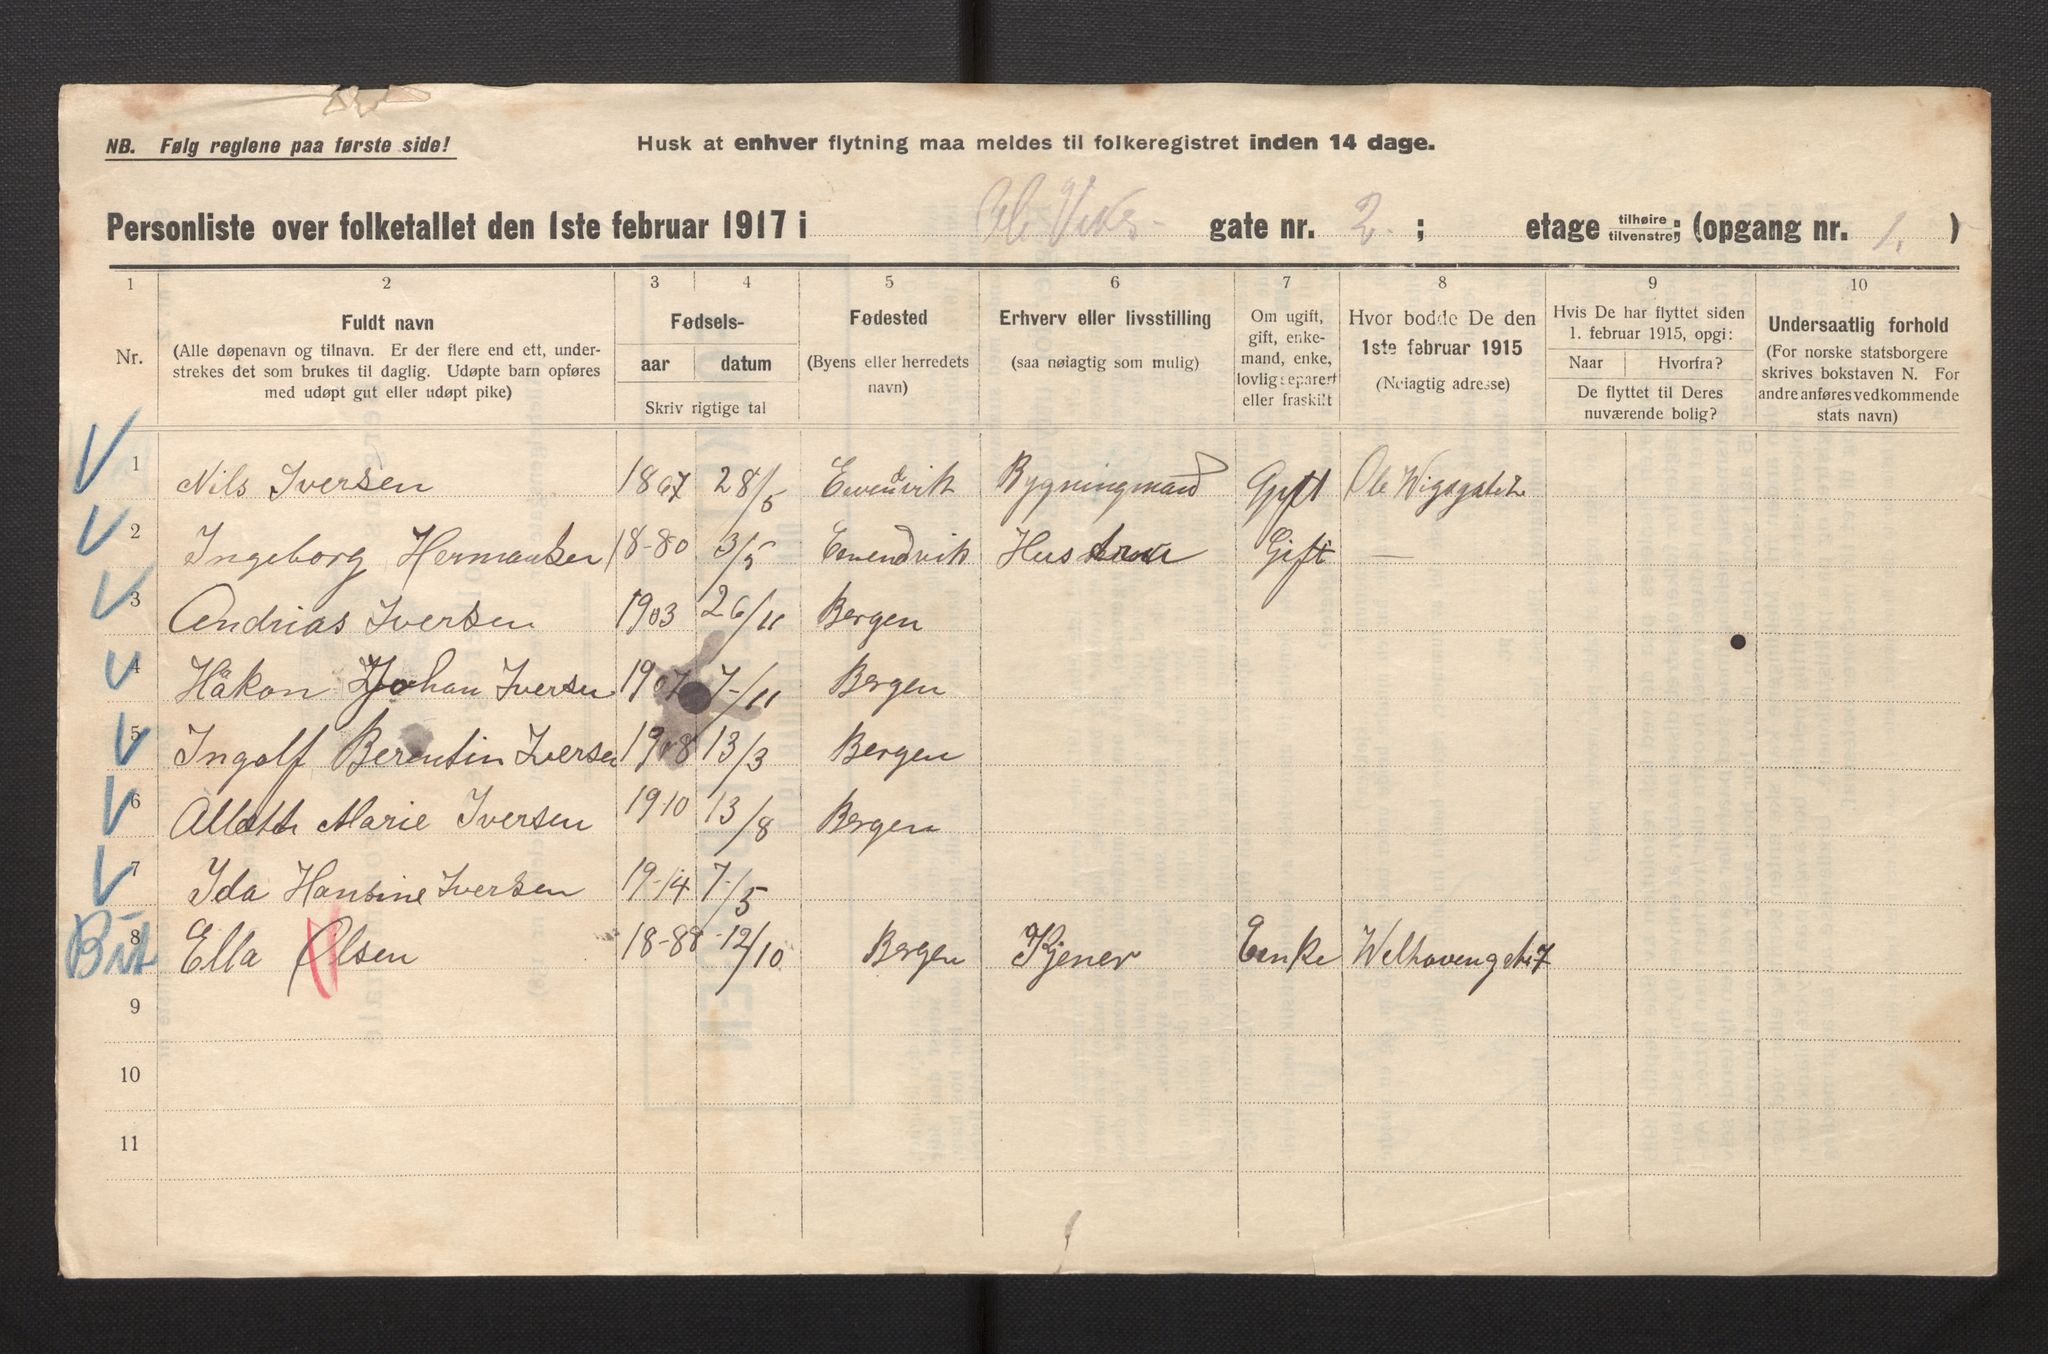 NB. Følg reglene paa første side! Husk at enhver flytning maa meldes til folkeregistret inden 14 dage.
Personliste over folketallet den 1ste februar 1917 i Ole Viks- gate nr. 2. ; etage tilhøire tilvenstre ; (opgang nr. 1. )
1 2 3 4 5 6 7 8 9 10
Nr.
Fuldt navn
(Alle døpenavn og tilnavn. Er der flere end ett, under-
strekes det som brukes til daglig. Udøpte barn opføres
med udøpt gut eller udøpt pike)
Fødsels-
aar datum
Skriv rigtige tal
Fødested
(Byens eller herredets
navn)
Erhverv eller livsstilling
(saa nøiagtig som mulig)
Om ugift,
gift, enke-
mand, enke,
lovlig separert
eller fraskilt
Hvor bodde De den
1ste februar 1915
(Nøiagtig adresse)
Hvis De har flyttet siden
1. februar 1915, opgi:
Naar Hvorfra?
De flyttet til Deres
nuværende bolig?
Undersaatlig forhold
(For norske statsborgere
skrives bokstaven N. For
andre anføres vedkommende
stats navn)
1 Nils Iversen 1867 28/5 Evendvik Bygningmand Gift Ole Wigsgate 2
2 Ingeborg Hermansen 18-80 3/5 Evendvik Hustru Gift —
3 Andrias Iversen 1903 26/11 Bergen
4 Håkon Johan Iversen 1907 7-/11 Bergen
5 Ingolf Berentin Iversen 1908 13/3 Bergen
6 Marie Iversen 1910 13/8 Bergen
7 Ida Hansine Iversen 19-14 7-/5
Bit 8 Ella Olsen 18-88 -12/10 Bergen Kjener Enke Welhavengate 7
9
10
11